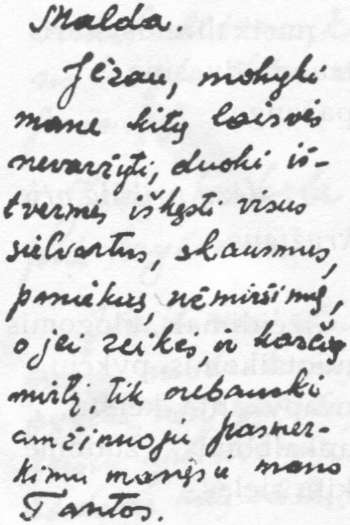 Malda.
Jėzau, mokyki
mane kitų laisvės
nevaržyti, duoki iš-
tvermės iškęsti visus
sielvartus, skausmus,
paniekas, užmiršimą,
o jei reikės, ir karčią
mirtį, tik nebauski
amžinuoju pasmer-
kimu manęs ir mano
Tautos.